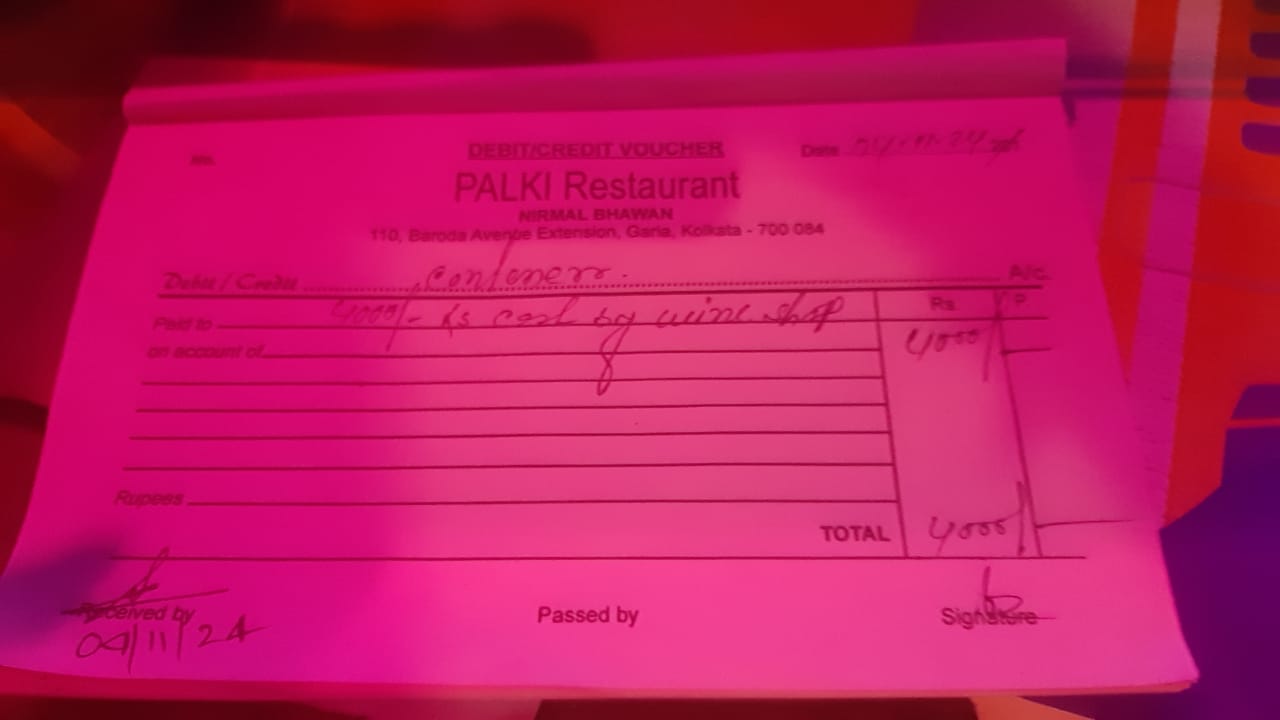 No.
DEBIT/CREDIT VOUCHER
Date 04-11-24
PALKI Restaurant
NIRMAL BHAWAN
110, Baroda Avenue Extension, Garia, Kolkata - 700 084
Debit / Credit Conteners. A/c.
Paid to 4000/- Rs cash by wine shop Rs. P.
on account of 4000/-
Rupees
TOTAL 4000/-
Received by Passed by Signature
04/11/24